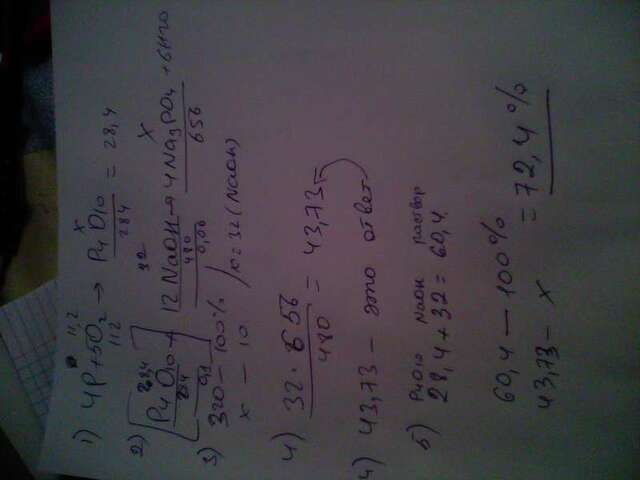 11,2 x
1) 4P + 5O2 → P4O10 = 28,4
112 284
28,4 32 x
2) [P4O10 + 12NaOH → 4Na3PO4 + 6H2O
284 480 656
0,06
3) 320 – 100%
x – 10 x = 32 (NaOH)
4) 32 · 656 = 43,73
480
4) 43,73 – это ответ
P4O10 NaOH раствор
5) 28,4 + 32 = 60,4
60,4 – 100%
43,73 – x = 72,4%